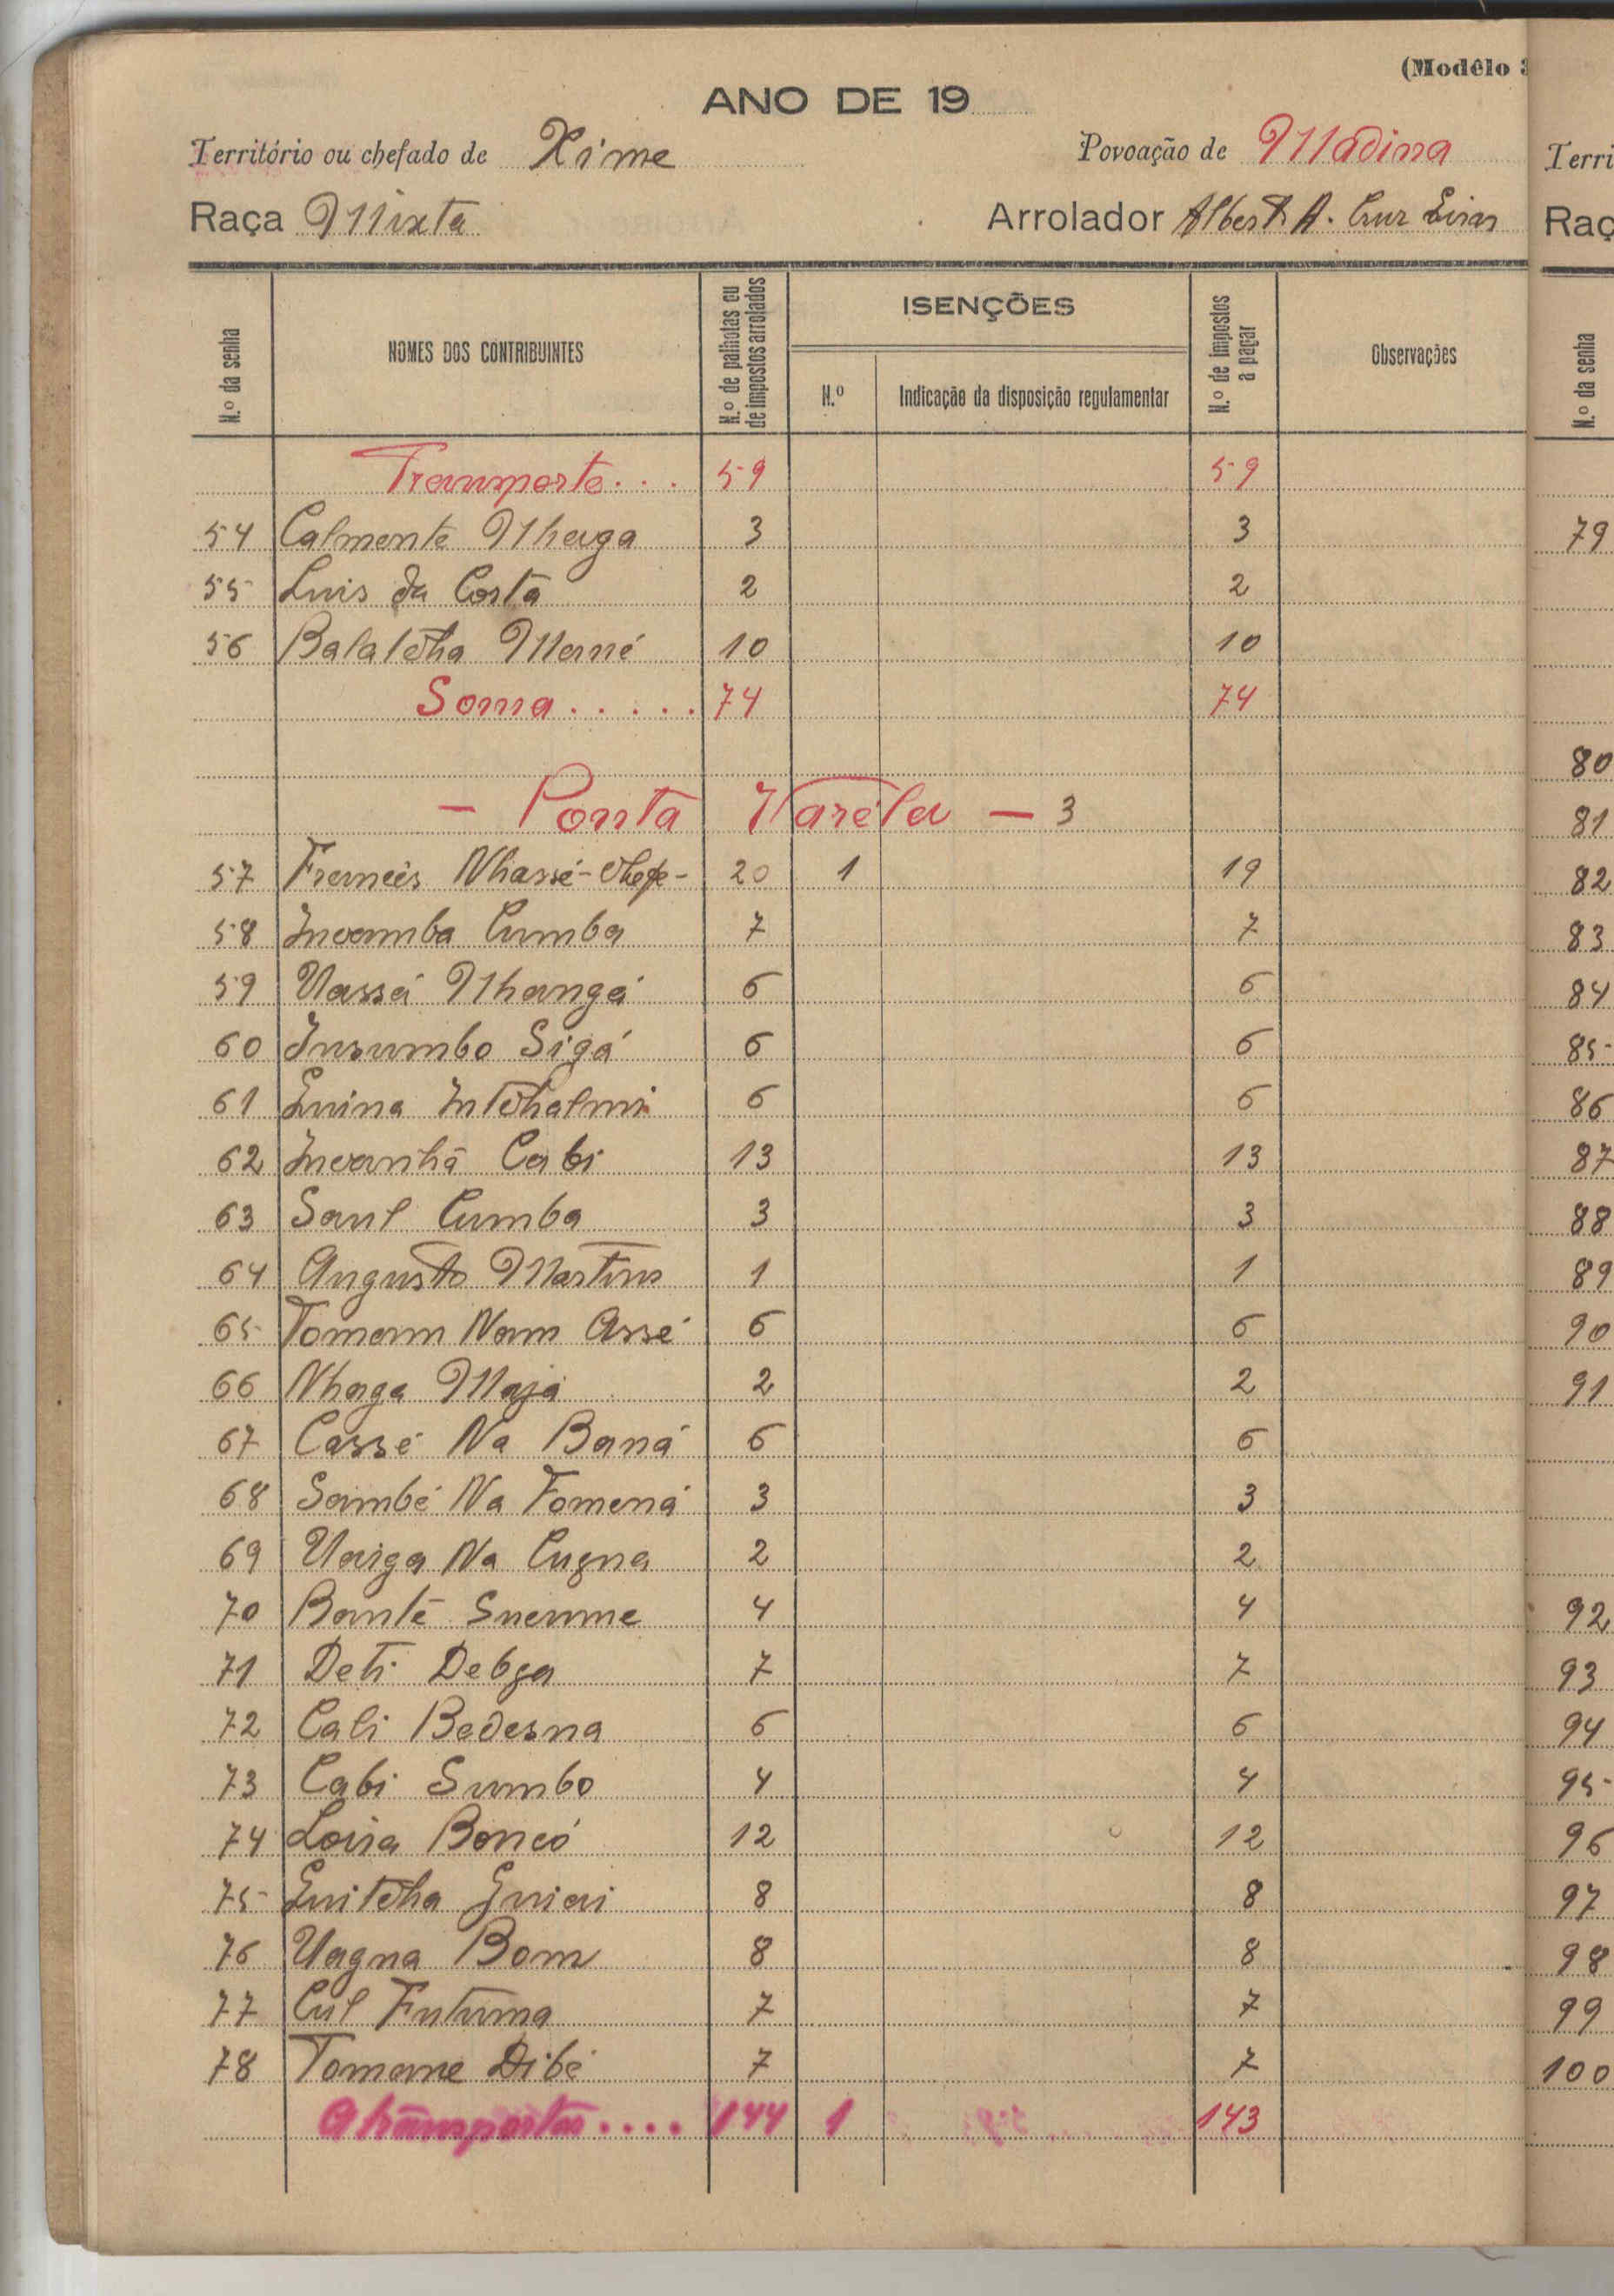 (Modêlo 3
ANO DE 19
Território ou chefado de Xime Povoação de Madina
Raça Mixta Arrolador Albert A. Cruz
N.º da senha NOMES DOS CONTRIBUINTES N.º de palhotas ou de impostos arrolados ISENÇÕES N.º Indicação da disposição regulamentar N.º de impostos a pagar Observações
Transporte . . . 59 59
54 Calmente Nhaga 3 3
55 Luis da Costa 2 2
56 Balatcha Mané 10 10
Soma . . . . . 74 74
— Ponta Varéla — 3
57 Francês Nhassé - Chefe - 20 1 19
58 Incamba Cumba 7 7
59 Uassá Nhangá 6 6
60 Insumbo Sigá 6 6
61 Guina Intchalmi 6 6
62 Incanhã Cabi 13 13
63 Saul Cumba 3 3
64 Augusto Martins 1 1
65 Tomam Nam Assé 6 6
66 Nhaga Majá 2 2
67 Cassé Na Baná 6 6
68 Sambé Na Fomená 3 3
69 Uaiga Na Cugna 2 2
70 Bantē 4 4
71 Deti Debga 7 7
72 Cali Bedesna 6 6
73 Cabi Sumbo 4 4
74 Loisa Boncó 12 12
75 Guitcha Guiai 8 8
76 Uagna Bom 8 8
77 Cul Futuma 7 7
78 Tomane Dibé 7 7
A transportar . . . . 144 1 143
Terri
Raç
N.º da senha
79
80
81
82
83
84
85
86
87
88
89
90
91
92
93
94
95
96
97
98
99
100